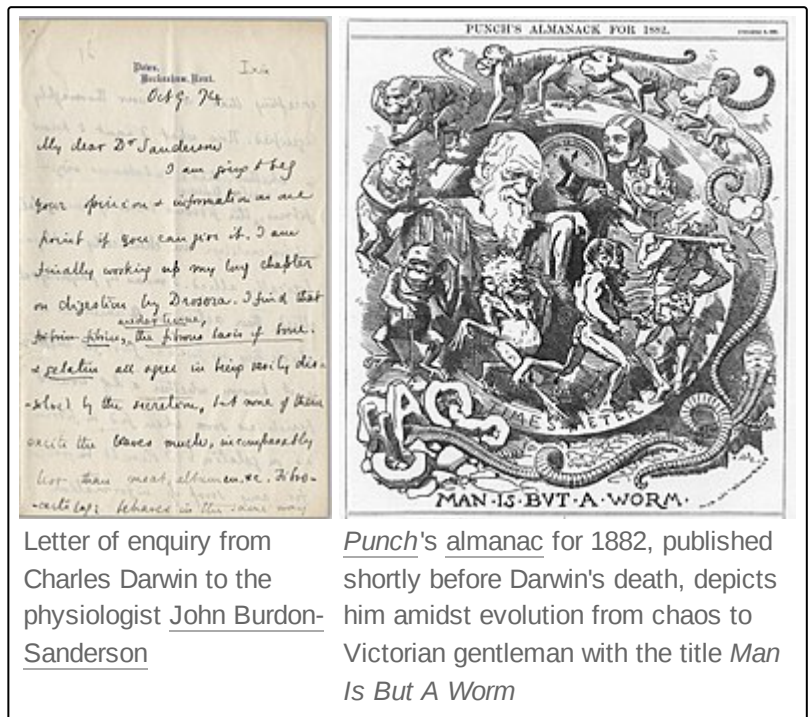 Down,
Beckenham, Kent.
Oct 9. 74
My dear Dr Sanderson
I am going to beg
your opinion & information on one
point if you can give it. I am
finally working up my long chapter
on digestion by Drosera. I find that
fibrin, the fibrous basis of bone,
& gelatin all agree in being easily dis-
-solved by the secretion, but none of them
excite the leaves much, incomparably
less than meat, albumen, &c. Fibro-
-cartilage behaves in the same way
PUNCH'S ALMANACK FOR 1882.
CHAOS
TIMES METER
MAN·IS·BUT·A·WORM·
Letter of enquiry from
Charles Darwin to the
physiologist John Burdon-
Sanderson
Punch's almanac for 1882, published
shortly before Darwin's death, depicts
him amidst evolution from chaos to
Victorian gentleman with the title Man
Is But A Worm